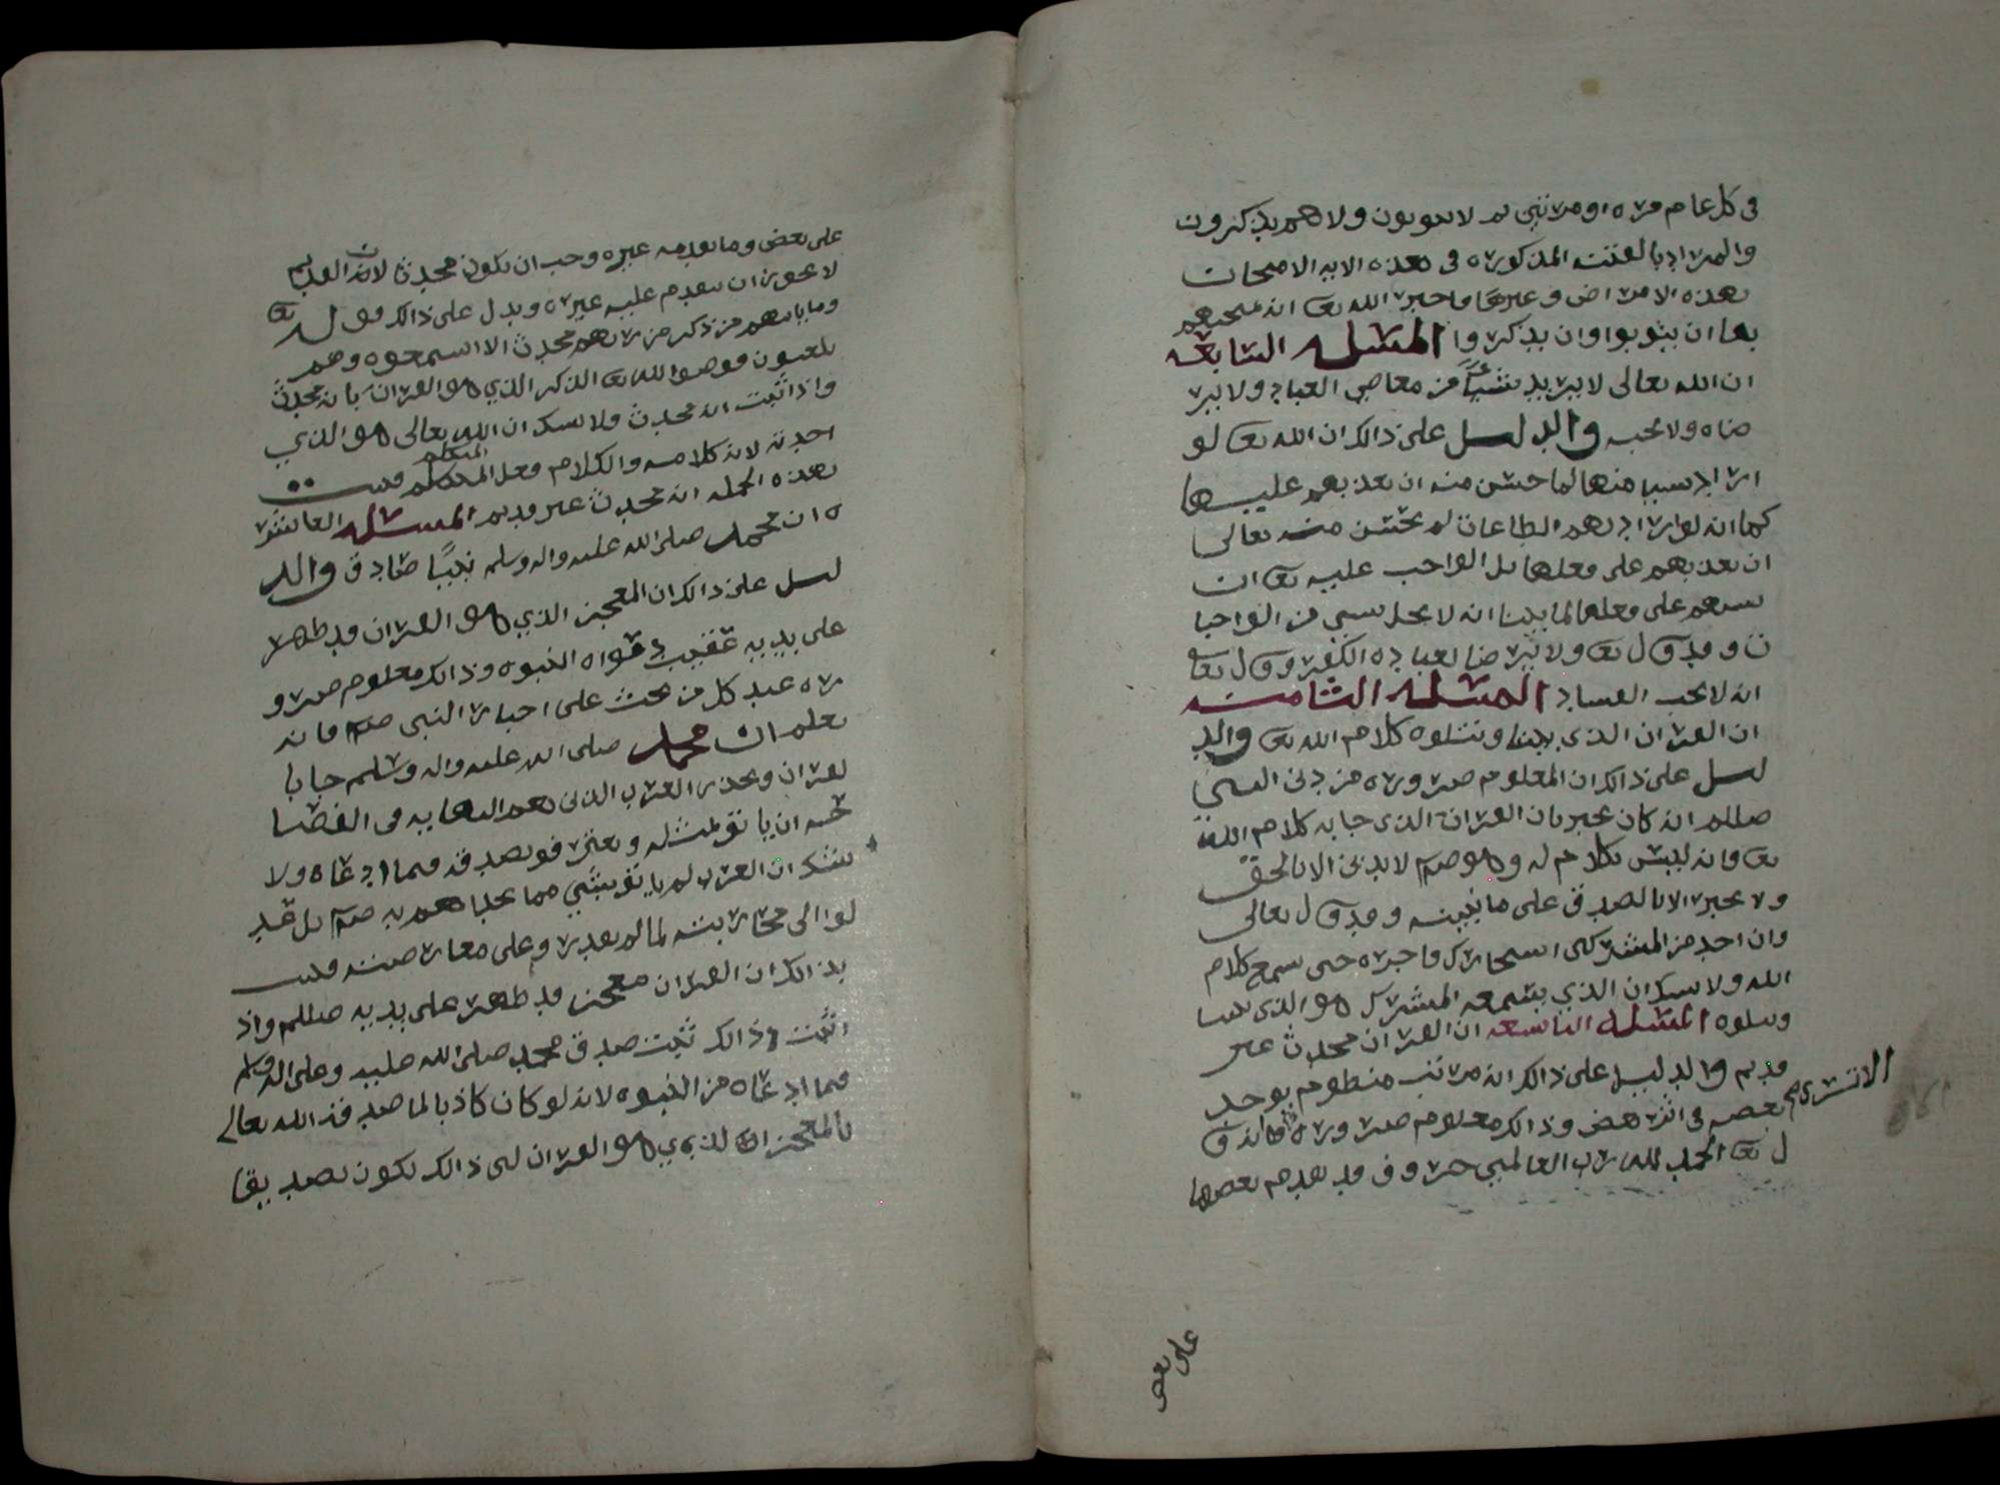 في كل عام مره او مرتين ثم لا يتوبون ولا هم يذكرون
والمراد بالفتنه المذكوره في هذه الايه الامتحان
بهذه الامراض وغيرها فاخبر الله تعا انه يمتحنهم
بها ان يتوبوا وان يذكروا المسله السابعه
ان الله تعالى لا يريد شياً من معاصي العباد ولا ير
ضاه ولا يحبه والدليل على ذالك ان الله تعا لو
اراد شيا منها لما حسن منه ان يعذبهم عليها
كما انه لو اراد منهم الطاعات لم يحسن منه تعالى
ان يعذبهم على فعلها بل الواجب عليه تعا ان
يثيبهم على فعلها لما بينا انه لا يخل بشي من الواجبا
ت وقد قال تعا ولا يرضا لعباده الكفر وقال تعا
انه لا يحب الفساد المسله الثامنه
ان القران الذي بيننا ونتلوه كلام الله تعا والد
ليل على ذالك ان المعلوم ضروره من دين النبي
صللم انه كان يخبر بان القران الذي جا به كلام الله
تعا وانه ليس بكلام له وهو صلم لا يدين الا بالحق
ولا يخبر الا بالصدق على ما نبينه وقد قال تعالى
وان احد من المشركين استجارك فاجره حتى يسمع كلام
الله ولا شك ان الذي يسمعه المشرك هو الذي بيننا
ونتلوه المسله التاسعه ان القران محدث غير
قديم والدليل على ذالك انه مرتب منظوم يوجد
بعضه في اثر بعض وذالك معلوم ضروره فانه قا
ل تعا الحمد لله رب العالمين حروف قد تقدم بعضها
الا ترى
على بعض
على بعض وما تقدمه غيره وجب ان يكون محدثا لان القديم
لا يجوز ان يتقدم عليه غيره ويدل على ذالك قوله تعا
وما ياتيهم من ذكر من ربهم محدث الا استمعوه وهم
يلعبون فوصف الله تعا الذكر الذي هو القران بانه محدث
واذا ثبت انه محدث ولا شك ان الله تعالى هو الذي
احدثه لانه كلامه والكلام فعل المتكلم فثبت
بهذه الجمله انه محدث غير قديم المسله العاشر
ه ان محمد صلى الله عليه واله وسلم نبياً صادق والد
ليل على ذالك ان المعجز الذي هو القران قد ظهر
على يديه عقيب دعواه النبوه وذالك معلوم ضرو
ره عند كل من بحث على اخبار النبي صلم فانه
يعلم ان محمد صلى الله عليه واله وسلم جا با
لقران وتحدى العرب الذين هم النهايه في الفصا
حه ان ياتو بمثله فيما ادعاه ولا
شك ان العرب لم ياتو بشي مما تحداهم به صلم بل عد
لوا الى محاربته لما لم يقدرو على معارضته فثبت
بذالك ان القران معجز قد ظهر على يديه صللم واذ
اثبت ذالك ثبت صدق محمد صلى الله عليه وعلى اله وسلم
فيما ادعاه من النبوه لانه لو كان كاذبا لما صدقه الله تعالى
بالمعجز الذي هو القران لان ذالك يكون تصديقا